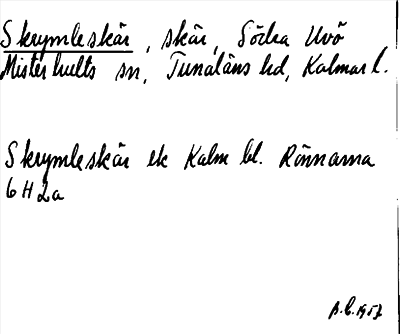 Skrymleskär, skär, Södra Uvö
Misterhults sn, Tunaläns hd, Kalmar l.
Skrymleskär ek Kalm bl. Rönnarna
6 H 2a
1957